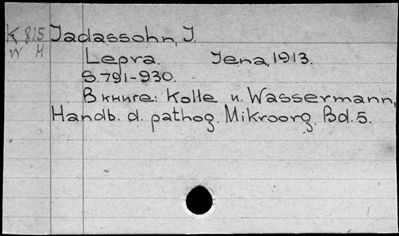 K 815 Jadassohn, J.
W H Lepra. Jena, 1913.
S. 791-930.
В книге: Kolle и. Wassermann,
Handb. d. pathog. Mikroorg. Bd. 5.